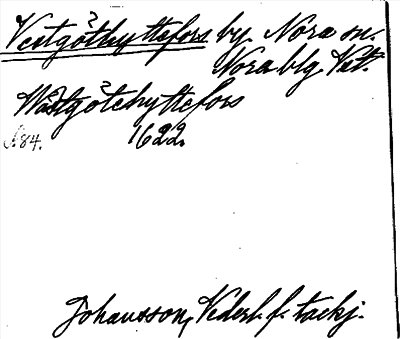 Vestgöthyttefors by. Nora sn.
Nora blg, Vstt.
Wästgötehyttefors
N:84. 1622.
Johansson, Nederl. f. tackj.